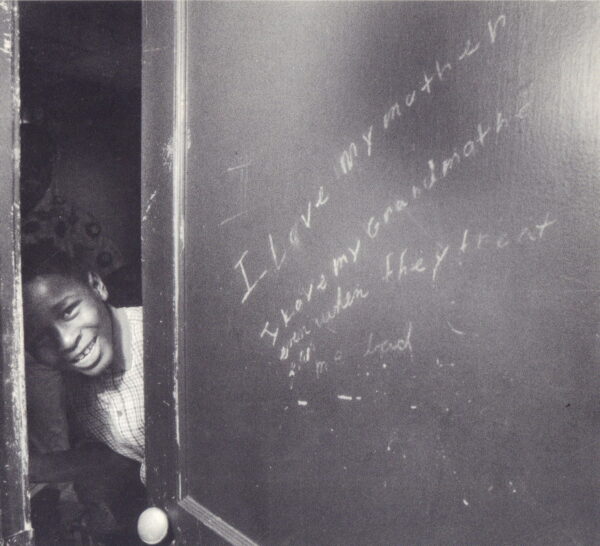 I
I Love My mother
I Love my Grandmothe
even when they treat
me bad